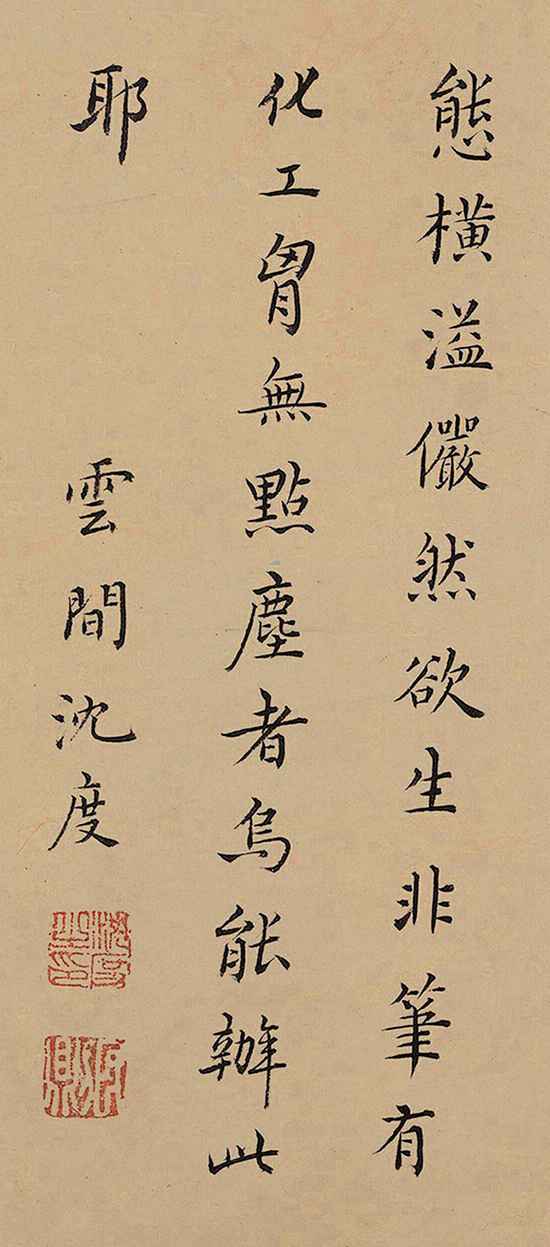 態橫溢儼然欲生非筆有
化工胷無點塵者烏能辦此
耶
雲間沈度
沈度之印